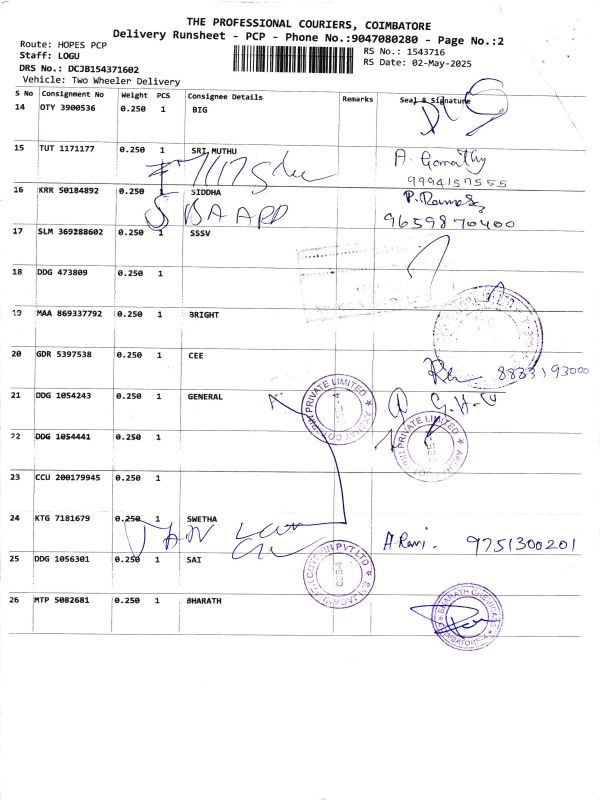 THE PROFESSIONAL COURIERS, COIMBATORE
Delivery Runsheet - PCP - Phone No.:9047080280 - Page No.:2
Route: HOPES PCP
RS No.: 1543716
Staff: LOGU
RS Date: 02-May-2025
DRS No.: DCJB154371602
Vehicle: Two Wheeler Delivery
S No Consignment No Weight PCS Consignee Details Remarks Seal & Signature
14 OTY 3900536 0.250 1 BIG
15 TUT 1171177 0.250 1 SRI MUTHU
A. Gomathy
9994157555
16 KRR 50184892 0.250 1 SIDDHA
9659870400
17 SLM 369288602 0.250 1 SSSV
18 DDG 473809 0.250 1
19 MAA 869337792 0.250 1 BRIGHT
20 GDR 5397538 0.250 1 CEE
8883193000
21 DDG 1054243 0.250 1 GENERAL
PRIVATE LIMITED
CBE-4
PRIVATE LIMITED
22 DDG 1054441 0.250 1
23 CCU 200179945 0.250 1
24 KTG 7181679 0.250 1 SWETHA
A. Rani. 9751300201
25 DDG 1056301 0.250 1 SAI
PVT LTD
CBE-4
26 MTP 5082681 0.250 1 BHARATH
BHARATH CHEMICALS
COIMBATORE-4